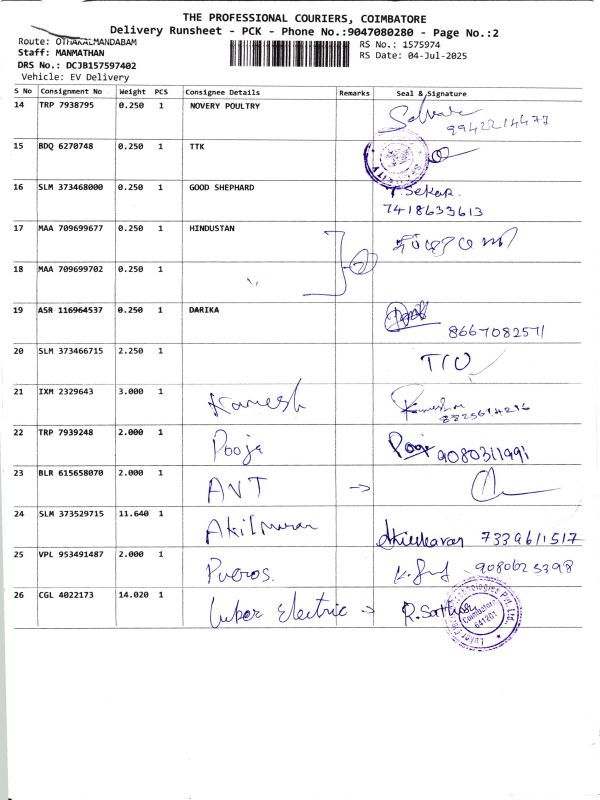 THE PROFESSIONAL COURIERS, COIMBATORE
Delivery Runsheet - PCK - Phone No.:9047080280 - Page No.:2
Route: OTHAKALMANDABAM
RS No.: 1575974
Staff: MANMATHAN
RS Date: 04-Jul-2025
DRS No.: DCJB157597402
Vehicle: EV Delivery
S No Consignment No Weight PCS Consignee Details Remarks Seal & Signature
14 TRP 7938795 0.250 1 NOVERY POULTRY
9942214477
15 BDQ 6270748 0.250 1 TTK
16 SLM 373468000 0.250 1 GOOD SHEPHARD T. Sekar.
7418633613
17 MAA 709699677 0.250 1 HINDUSTAN
18 MAA 709699702 0.250 1
19 ASR 116964537 0.250 1 DARIKA
8667082571
20 SLM 373466715 2.250 1 T/O
21 IXM 2329643 3.000 1 Kamesh
22 TRP 7939248 2.000 1 Pooja Pooja 9080311991
23 BLR 615658070 2.000 1 AVT →
24 SLM 373529715 11.640 1 7339611517
25 VPL 953491487 2.000 1 9080625398
26 CGL 4022173 14.020 1 Luker Electric → R. Sathish
Coimbatore
641201